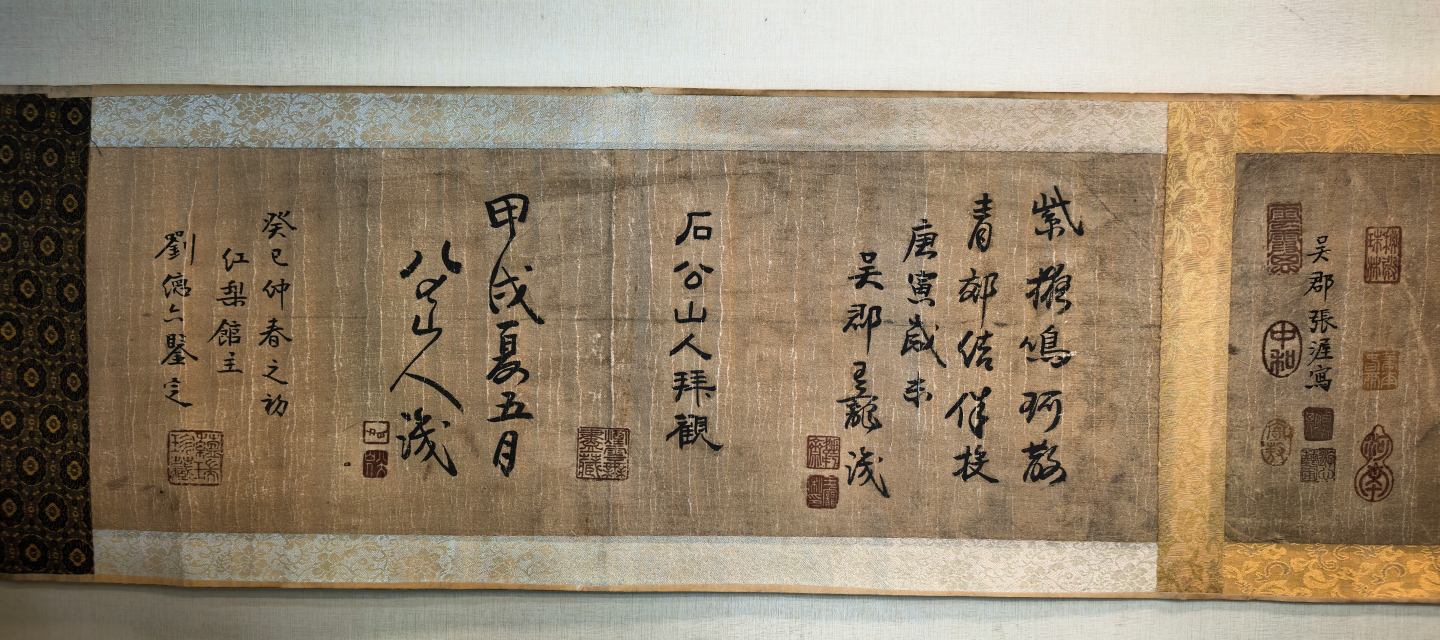 吴郡張渥寫
中和
紫檀鳴珂散
青郊結伴投
庚寅歲末
吴郡王寵識
石公山人拜觀
甲戌夏五月
八大山人識
癸巳仲春之初
紅梨館主
劉德六鑒定